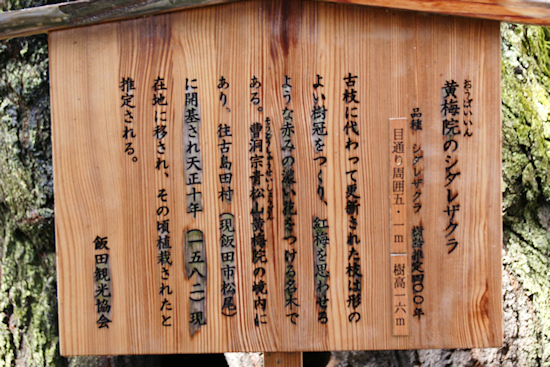 おうばいいん
黄梅院のシダレザクラ
品種 シダレザクラ 樹齢推定四〇〇年
目通り周囲五・一m 樹高一六m
古枝に代わって更新された枝は形の
よい樹冠をつくり、紅梅を思わせる
ような赤みの濃い花をつける名木で
ある。曹洞宗青松山黄梅院の境内に
あり、往古島田村(現飯田市松尾)
に開基され天正十年(一五八二)現
在地に移され、その頃植栽されたと
推定される。
飯田観光協会